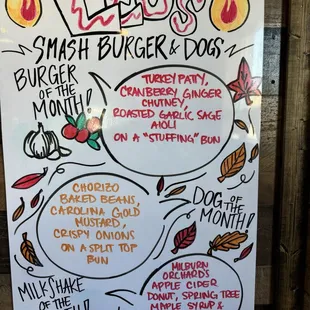 SMASH BURGER & DOGS
BURGER
OF THE
MONTH!
TURKEY PATTY,
CRANBERRY GINGER
CHUTNEY,
ROASTED GARLIC SAGE
AIOLI
ON A "STUFFING" BUN
DOG OF THE
MONTH!
CHORIZO
BAKED BEANS,
CAROLINA GOLD
MUSTARD,
CRISPY ONIONS
ON A SPLIT TOP
BUN
MILKSHAKE
OF THE
MILBURN
ORCHARD'S
APPLE CIDER
DONUT, SPRING TREE
MAPLE SYRUP &